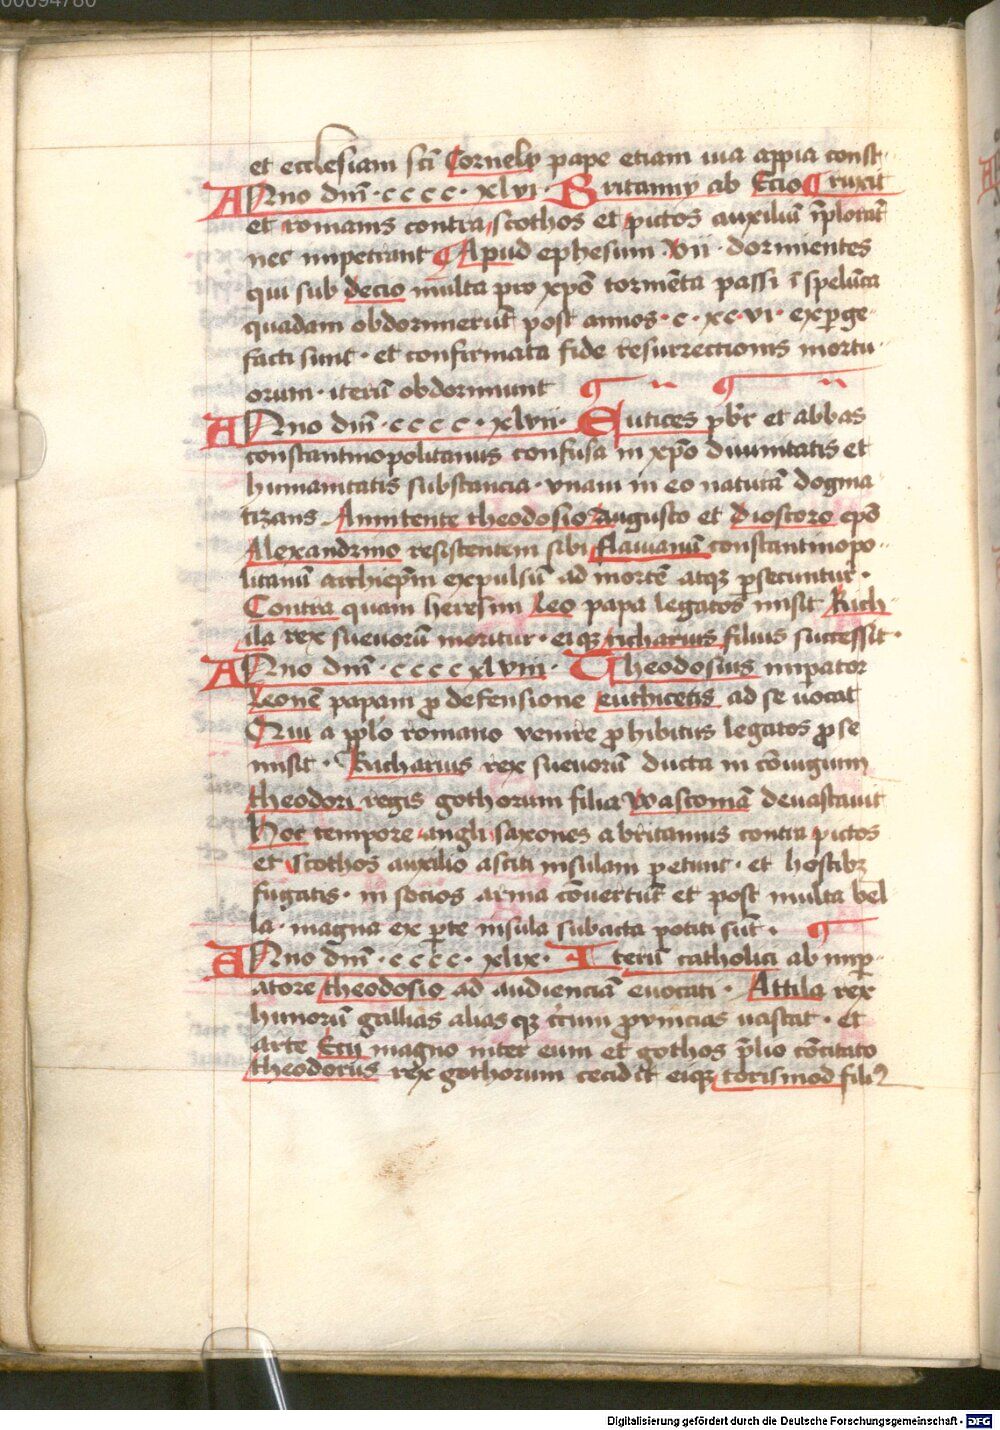 00094780
et ecclesiam sc̄i Cornely pape etiam uia appia const
Anno dn̄i · cccc · xlvi · Britanny ab Ecio
et romanis contra scothos et pictos auxiliū īplorāt
nec impetrant Apud ephesum · vii · dormientes
qui sub decio multa pro xpō tormēta passi ī spelūca
quadam obdormierūt post annos · c · xc · vi · exꝑge
facti sunt · et confirmata fide resurrectionis mortu
orum · iterū obdormiunt
Anno dn̄i · cccc · xlvii · Eutices pb̄r et abbas
constantinopolitanus confusa in xpō diuinitatis et
humanitatis substancia · vnam in eo naturā dogma
tizans Annitente theodosio Augusto et dioscoro ep̄o
Alexandrino resistentem sibi flauianū constantinopo
litanū archiep̄m expulsū ad mortē atqꝫ ꝑsecuntur ·
Contra quam heresim leo papa legatos misit Rich
ila rex sueuorū moritur · eiqꝫ richarius filius successit ·
Anno dn̄i · cccc xlviii · Theodosius imꝑator
Leonē papam ꝓ defensione euthicetis ad se uocat
Qui a pplo romano venire ꝓhibitus legatos ꝓ se
misit · Richarius rex sueuorū ducta in cōiugium
theodori regis gothorum filia wasconiā deuastauit
Hoc tempore angli saxones a britannis contra pictos
et scothos auxilio asciti insulam petunt · et hostibꝫ
fugatis · in socios arma cōuertūt et post multa bel
la · magna ex ꝑte insula subacta potiti sūt ·
Anno dn̄i · cccc · xlix · Iterū catholici ab imꝑ
atore theodosio ad audienciā euocati · Attila rex
hunorū gallias aliasqꝫ prouincias uastat · et
arte Ecii magno inter eum et gothos p̄lio cōcitato
theodorus rex gothorum cecidit eiqꝫ torismod filiꝰ
Digitalisierung gefördert durch die Deutsche Forschungsgemeinschaft - DFG